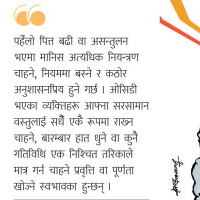 पहेँलो पित्त बढी वा असन्तुलन
भएमा मानिस अत्यधिक नियन्त्रण
चाहने, नियममा बस्ने र कठोर
अनुशासनप्रिय हुने गर्छ । ओसिडी
भएका व्यक्तिहरू आफ्ना सरसामान
वस्तुलाई सधैँ एकै रूपमा राख्न
चाहने, बारम्बार हात धुने वा कुनै
गतिविधि एक निश्चित तरिकाले
मात्र गर्न चाहने प्रवृत्ति वा पूर्णता
खोज्ने स्वभावका हुन्छन् ।